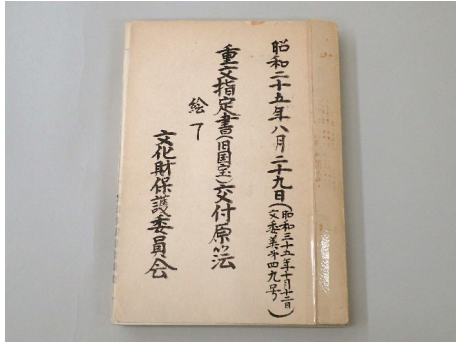 昭和二十五年八月二十九日(昭和三十五年十月十二日
文委美才四九号)
重文指定書(旧国宝)交付原簿
絵了
文化財保護委員会